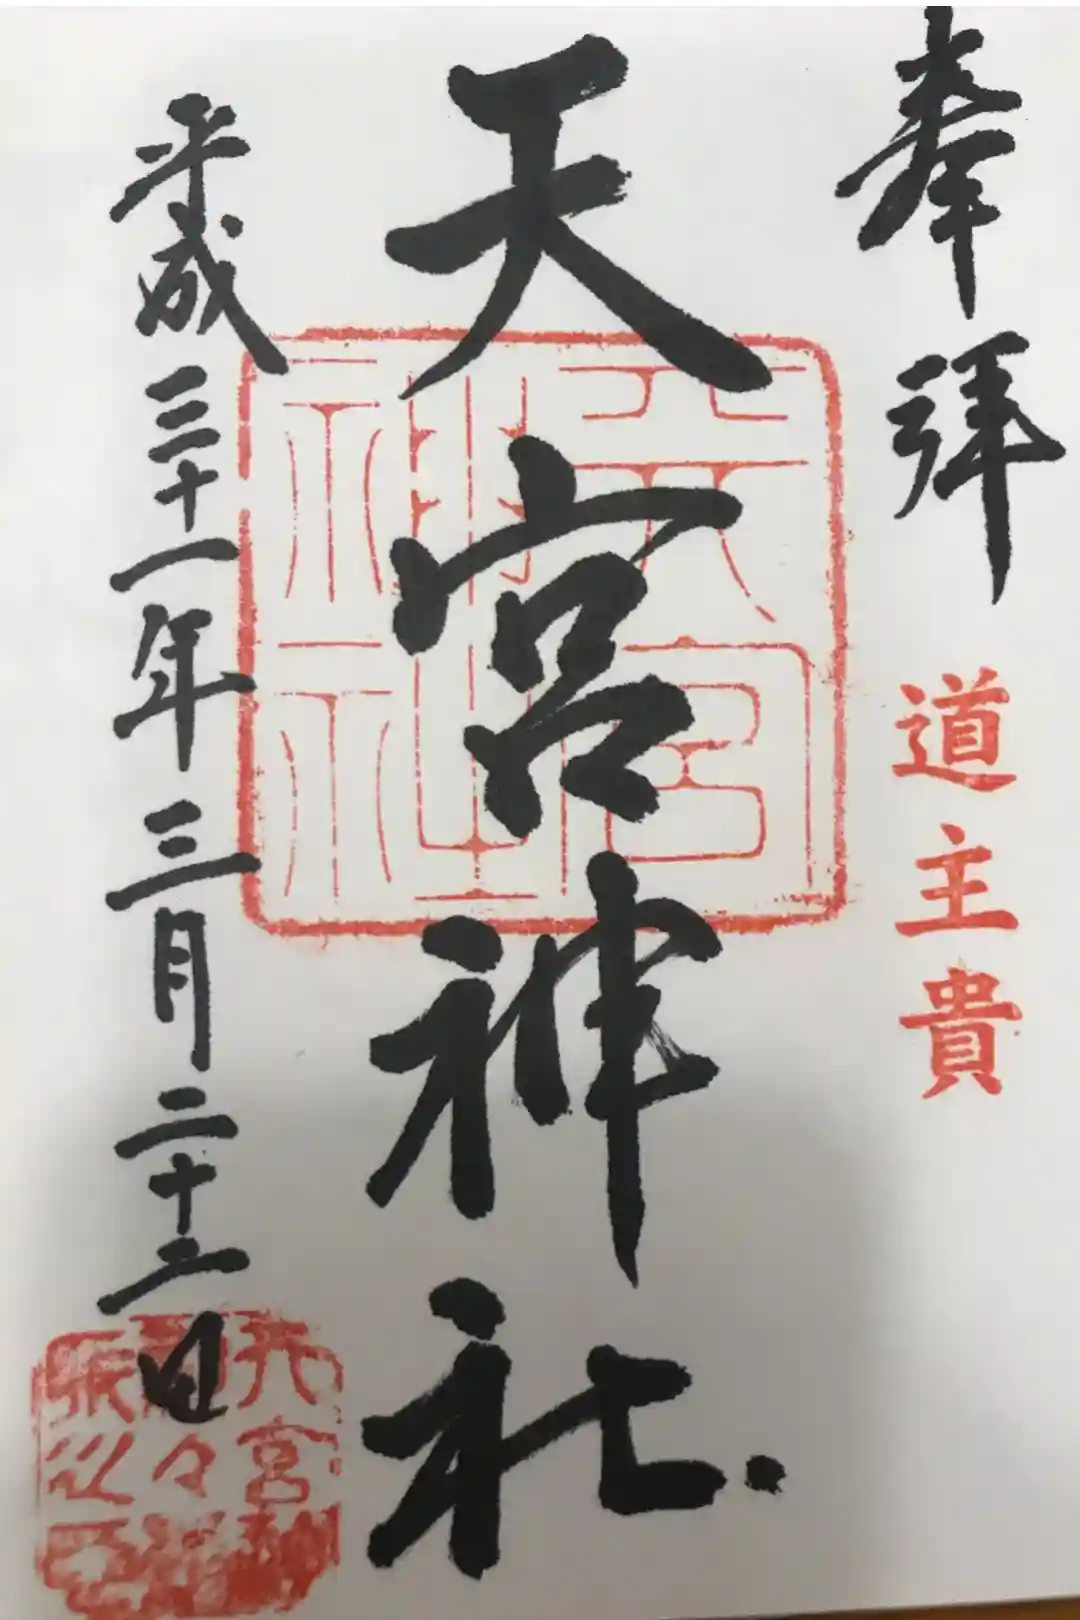 奉拝
道主貴
天宮神社
天宮神社
平成三十一年三月二十三日